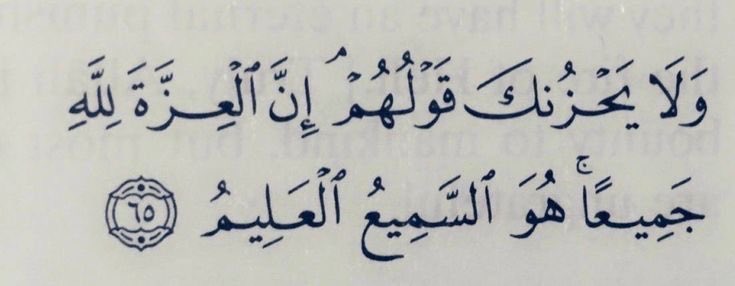 وَلَا يَحْزُنكَ قَوْلُهُمْ ۘ إِنَّ ٱلْعِزَّةَ لِلَّهِ
جَمِيعًا ۚ هُوَ ٱلسَّمِيعُ ٱلْعَلِيمُ ٦٥